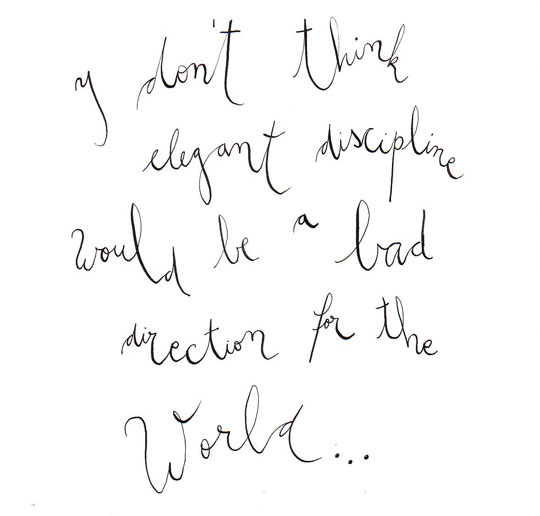 y don't think
elegant discipline
would be a bad
direction for the
World...